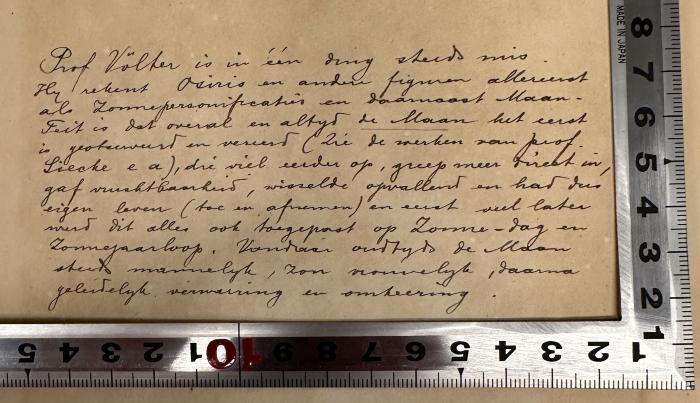 Prof Völter is in één ding steeds mis.
Hy rekent Osiris en andere figuren allereerst
als Zonnepersonificaties en daarnaast Maan-
Feit is dat overal en altyd de Maan het eerst
is geobserveerd en vereerd (Zie de werken van prof.
Siecke e a), die viel eerder op, greep meer direct in,
gaf vruchtbaarheid, wisselde opvallend en had dus
eigen leven (toe en afnemen) en eerst veel later
werd dit alles ook toegepast op Zonne-dag en
Zonnejaarloop. Vandaar oudtyds de Maan
steeds mannelyk, zon vrouwelyk, daarna
geleidelyk verwarring en omkeering.
MADE IN JAPAN
8
7
6
5
4
3
2
1
5 4 3 2 1 10 9 8 7 6 5 4 3 2 1